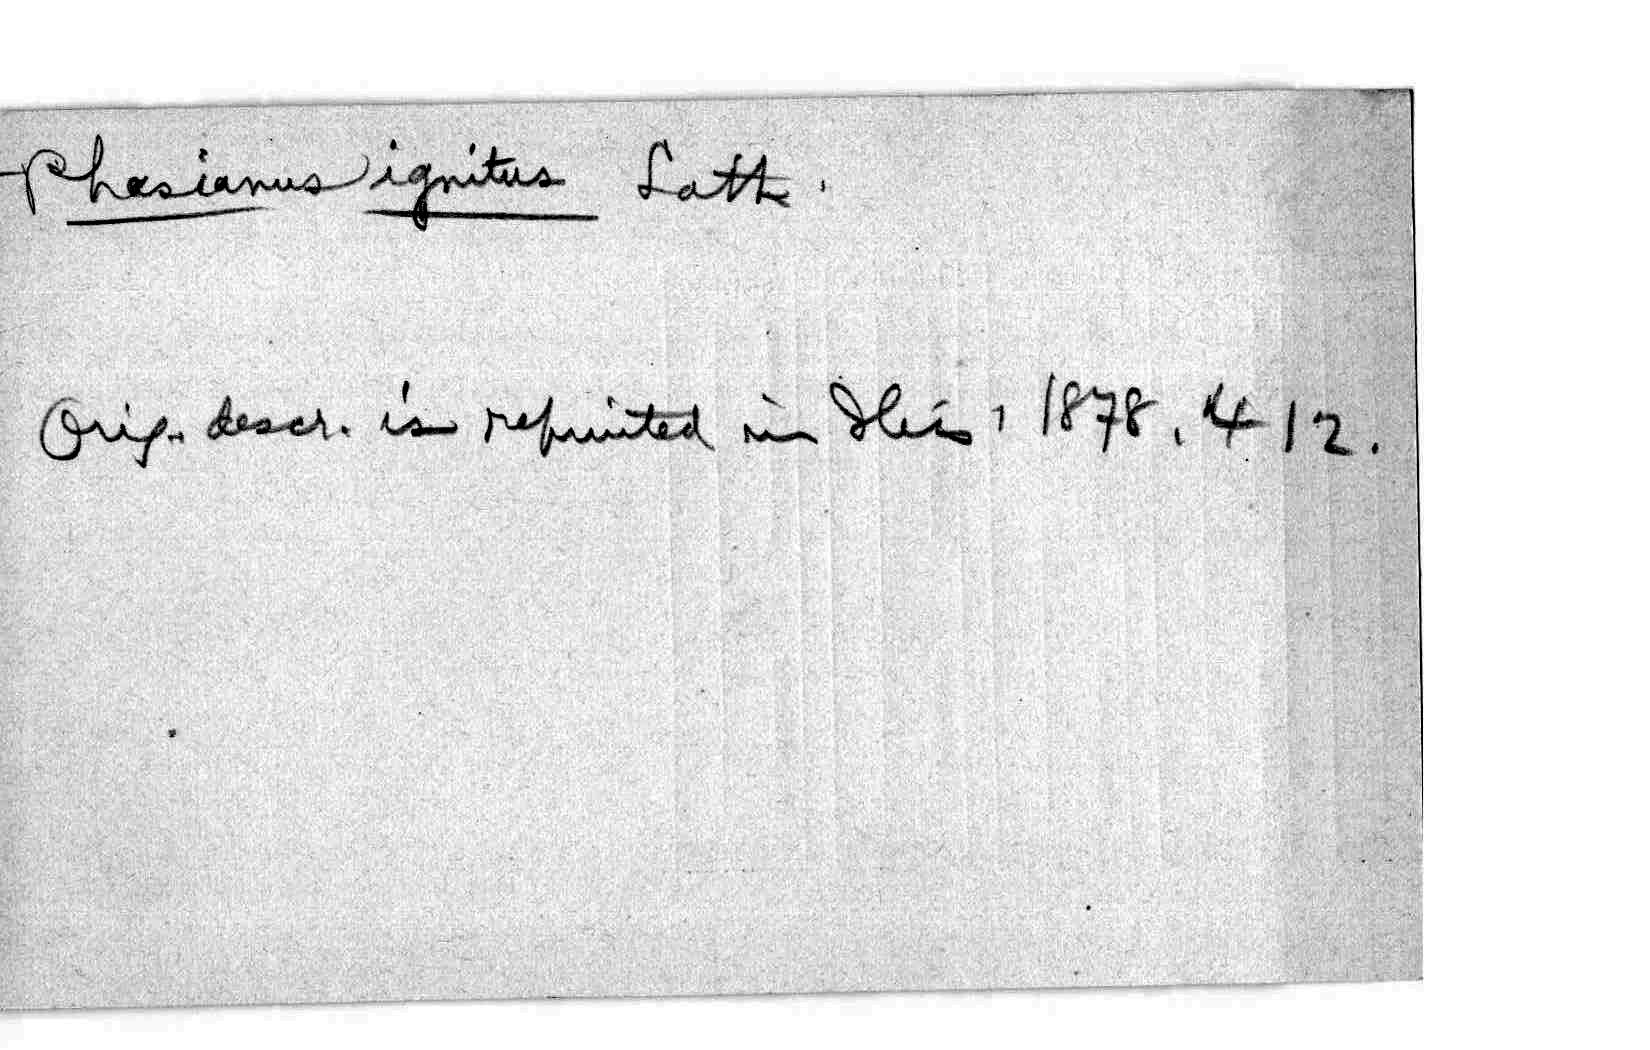 Phasianus ignitus Lath.
Orig. descr. is reprinted in Ibis, 1878, 412.